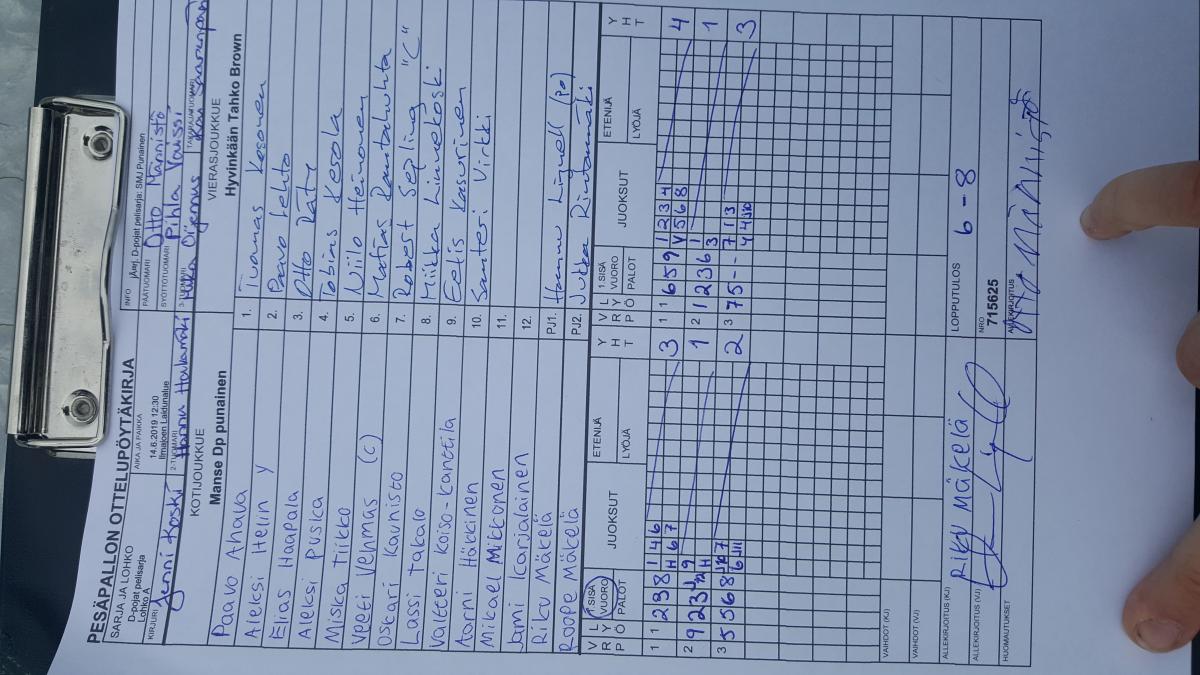 PESÄPALLON OTTELUPÖYTÄKIRJA
SARJA JA LOHKO
D-pojat pelisarja
Lohko A
AIKA JA PAIKKA
14.6.2019 12:30
Ilmajoen Laidunalue
INFO
D-pojat pelisarja: SMJ Punainen
PÄÄTUOMARI Otto Männistö
SYÖTTÖTUOMARI Pihla Vaissi
KIRJURI Jenni Koski
2-TUOMARI
3-TUOMARI
TAKARAJATUOMARI
KOTIJOUKKUE
Manse Dp punainen
VIERASJOUKKUE
Hyvinkään Tahko Brown
Paavo Ahava 1. Tuomas Kosonen
Aleksi Helin Y 2. Paavo Lehto
Elias Haapala 3. Otto Räty
Aleksi Pusica 4. Tobias Kesola
Miska Tiikko 5. Niilo Heinonen
Veeti Vehmas (c) 6. Matias Rantahuhta
Oskari Kaunisto 7. Robest Sepling "C"
Lassi Takalo 8. Miikka Linnekoski
Valtteri Koiso-Kanttila 9. Eelis Kasurinen
Aarni Häkkinen 10. Santeri Virkki
Mikael Mikkonen 11.
Jami Karjalainen 12.
Riku Mäkelä PJ1. Hannu Lingell (Po)
Roope Mäkelä PJ2. Jukka Rintamäki
VRP ILÖ 1.SISÄ VUORO PALOT JUOKSUT ETENIJÄ LYÖJÄ YHT VRP ILÖ 1.SISÄ VUORO PALOT JUOKSUT ETENIJÄ LYÖJÄ YHT
1 1 2 9 8 1 4 6 3 1 1 6 5 9 1 2 3 4 4
H 6 7 V 5 6 8
2 9 2 3 9 1 2 1 2 3 6 1 1
H 3
3 5 5 6 8 7 2 3 7 5 - - 7 1 3 3
6
VAIHDOT (KJ)
VAIHDOT (VJ)
ALLEKIRJOITUS (KJ) Riku Mäkelä
LOPPUTULOS 6 - 8
ALLEKIRJOITUS (VJ)
NRO
715625
HUOMAUTUKSET
ALLEKIRJOITUS